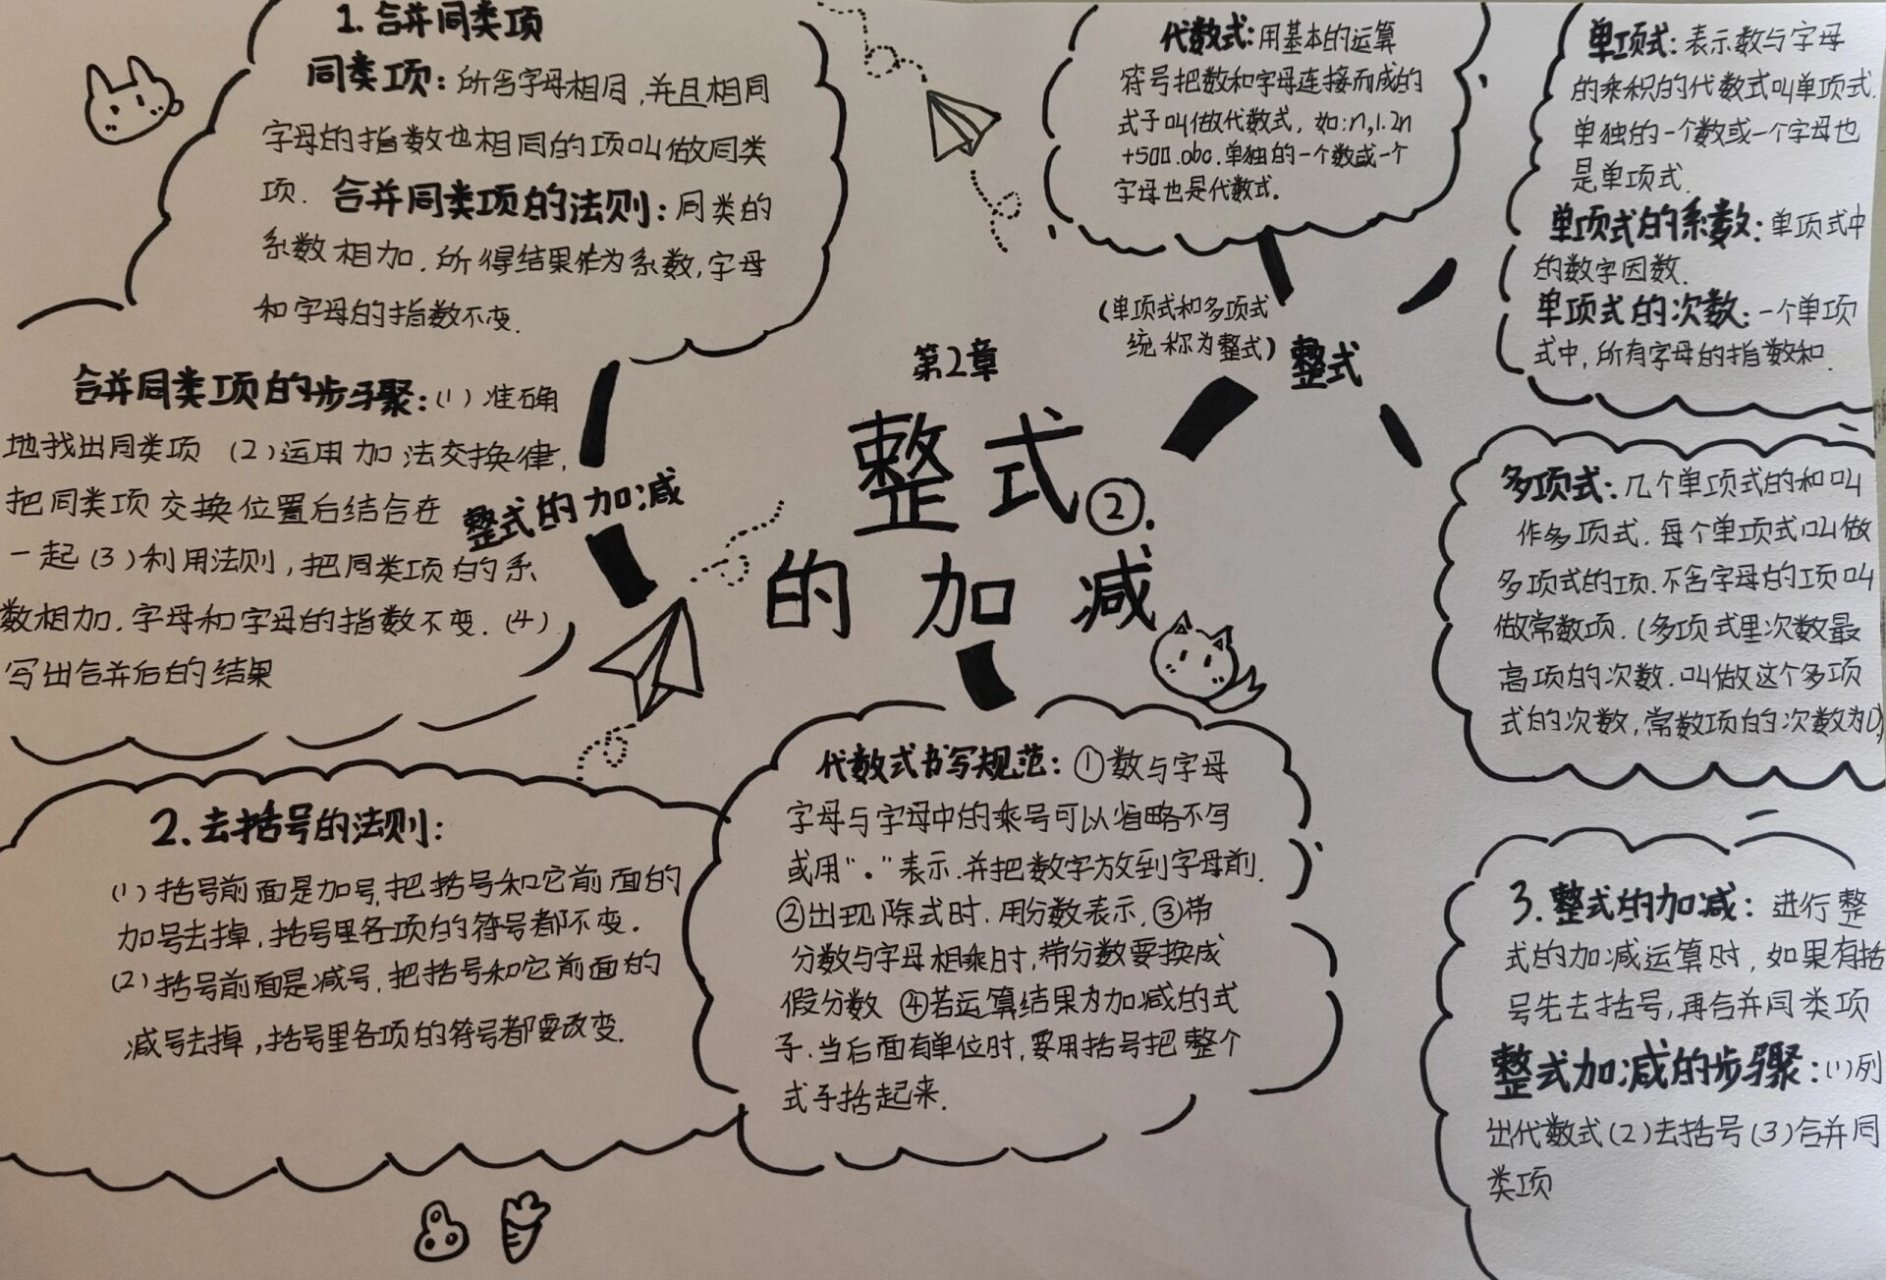 第2章
整式②.
的加减
1.合并同类项
同类项:所含字母相同,并且相同
字母的指数也相同的项叫做同类
项.合并同类项的法则:同类的
系数相加.所得结果作为系数,字母
和字母的指数不变.
合并同类项的步骤:(1)准确
地找出同类项 (2)运用加法交换律,
把同类项交换位置后结合在
一起(3)利用法则,把同类项的系
数相加.字母和字母的指数不变.(4)
写出合并后的结果
整式的加减
2.去括号的法则:
(1)括号前面是加号,把括号和它前面的
加号去掉,括号里各项的符号都不变.
(2)括号前面是减号,把括号和它前面的
减号去掉,括号里各项的符号都要改变.
代数式书写规范:①数与字母
字母与字母中的乘号可以省略不写
或用"。"表示.并把数字放到字母前.
②出现除式时.用分数表示,③带
分数与字母相乘时,带分数要换成
假分数 ④若运算结果为加减的式
子.当后面有单位时,要用括号把整个
式子括起来.
代数式:用基本的运算
符号把数和字母连接而成的
式子叫做代数式,如:n,1.2n
+500.abc.单独的一个数或一个
字母也是代数式.
(单项式和多项式
统称为整式)
整式
单项式:表示数与字母
的乘积的代数式叫单项式.
单独的一个数或一个字母也
是单项式.
单项式的系数:单项式中
的数字因数.
单项式的次数:一个单项
式中,所有字母的指数和.
多项式:几个单项式的和叫
作多项式.每个单项式叫做
多项式的项.不含字母的项叫
做常数项.(多项式里次数最
高项的次数.叫做这个多项
式的次数,常数项的次数为0)
3.整式的加减:进行整
式的加减运算时,如果有括
号先去括号,再合并同类项
整式加减的步骤:(1)列
出代数式(2)去括号(3)合并同
类项